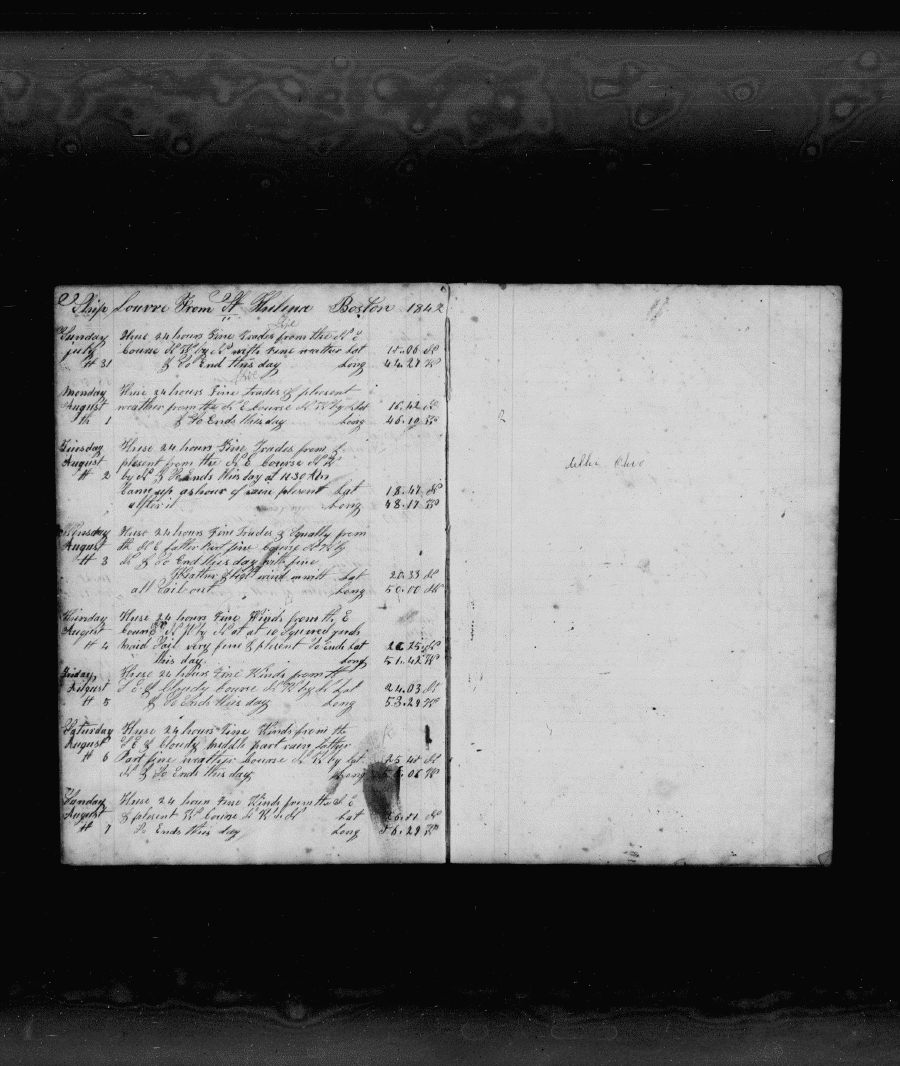 Ship Louvre From St Thelena Boston 1842
Sunday These 24 hours Fine Trades from the N E
July Course N W by N with Fine weather Lat 15.06 N
th 31 & So End this day Long 44.27 W
Monday These 24 hours Fine trades & plesent
August weather from the N E course N W by N Lat 16.42 N
th 1 & So Ends this day Long 46.19 W
Tuesday These 24 hours Fine Trades from &
August plesent from the N E Course N W
th 2 by N & So Ends this day at 11.30 Am
Came up a shour of rain plesent Lat 18.47 N
after it Long 48.17 W
These 24 hours Fine Trades & Squally from
August th N E latter Part fine Course N W by
th 3 N & So End this day with fine
Weather & wind with Lat 20.33 N
all Sail out Long 50.00 W
These 24 hours Fine Winds from th E
August Course N W by N at 10 Squared yards
th 4 Sail very fine & plesent So ends Lat 25 N
this day Long 51.42 W
Friday These 24 hours Fine Winds from th
August S E & Cloudy Course N W by N Lat 24.03 N
th 5 & So Ends this day Long 53.29 W
Saturday These 24 hours Fine Winds from the
August S E & Cloudy middle part rain latter
th 6 Part fine weather Course N W by Lat 25 N
N & So Ends this day Long 06 W
Sunday These 24 hour Fine Winds from the S E
August & plesent Wr Course N W by N Lat N
th 7 So Ends this day Long 56.29 W